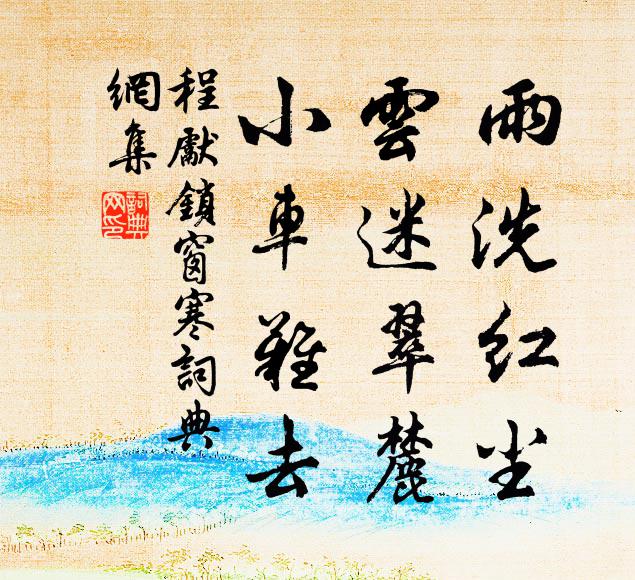 雨洗红尘
雲迷翠麓
小車難去
程獻鎖窗寒詞典
網集
詞典
网印